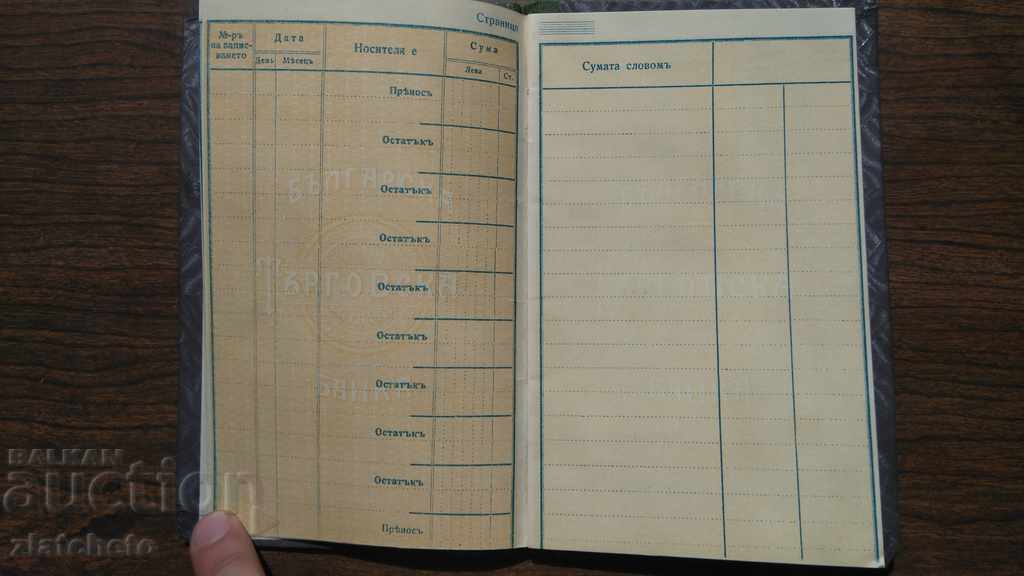 Страница
№-ръ на записването
Дата
День
Мѣсекъ
Носителя е
Сума
Лева
Ст.
Прѣносъ
Остатъкъ
Остатъкъ
Остатъкъ
Остатъкъ
Остатъкъ
Остатъкъ
Остатъкъ
Остатъкъ
Прѣносъ
БЪЛГАРСКА
ТЪРГОВСКА
БАНКА
Сумата словомъ
BALKAN
auction
zlatcheto